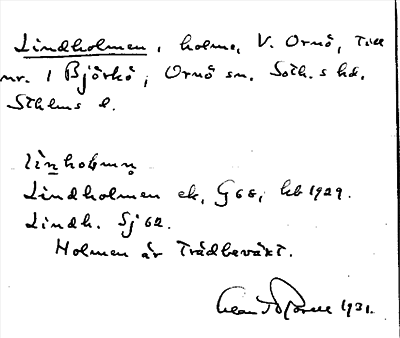 Lindholmen, holme, V. Ornö, till
nr. 1 Björkö, Ornö sn. Soth.s hd.
Sthlms l.
linholmn
Lindholmen ek, G 68, hb 1929.
Lindh. Sj 62.
Holmen är trädbeväxt.
1931.